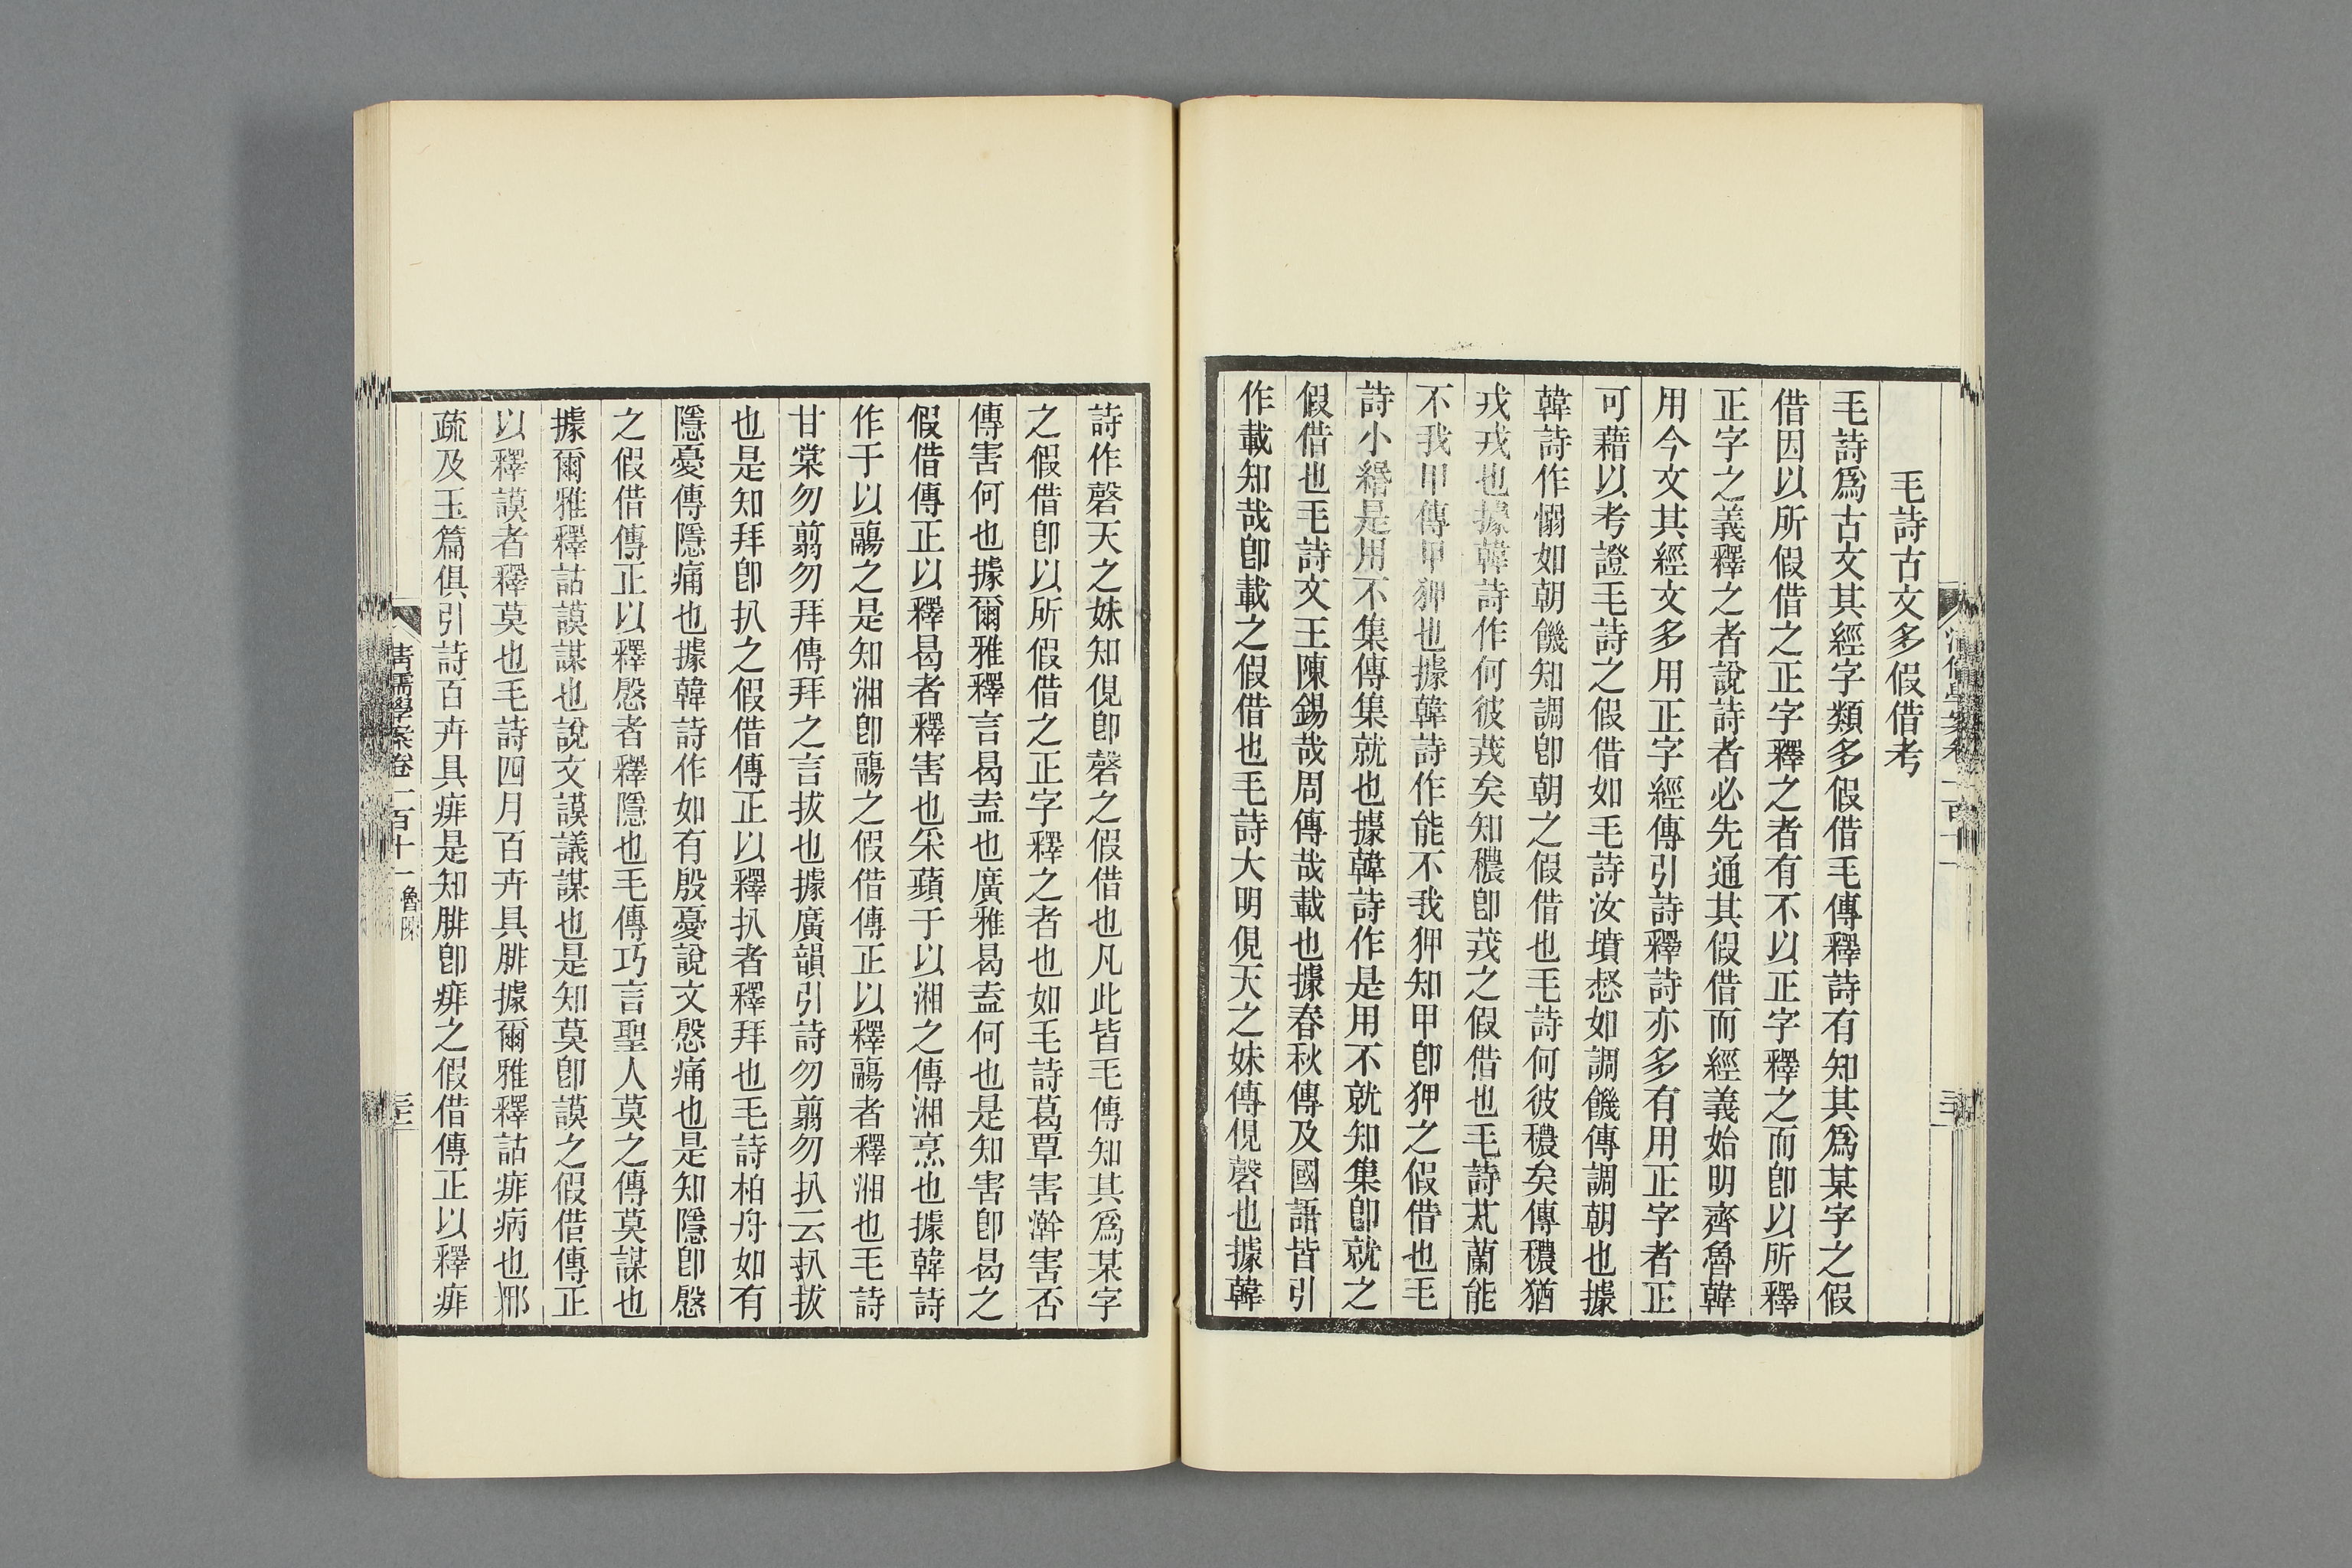 毛詩古文多假借考
毛詩爲古文其經字類多假借毛傳釋詩有知其爲某字之假
借因以所假借之正字釋之者有不以正字釋之而卽以所釋
正字之義釋之者說詩者必先通其假借而經義始明齊魯韓
用今文其經文多用正字經傳引詩釋詩亦多有用正字者正
可藉以考證毛詩之假借如毛詩汝墳惄如調饑傳調朝也據
韓詩作愵如朝饑知調卽朝之假借也毛詩何彼穠矣傳穠猶
戎戎也據韓詩作何彼茙矣知穠卽茙之假借也毛詩芄蘭能
不我甲傳甲狎也據韓詩作能不我狎知甲卽狎之假借也毛
詩小緡是用不集傳集就也據韓詩作是用不就知集卽就之
假借也毛詩文王陳錫哉周傳哉載也據春秋傳及國語皆引
作載知哉卽載之假借也毛詩大明俔天之妹傳俔磬也據韓
詩作磬天之妹知俔卽磬之假借也凡此皆毛傳知其爲某字
之假借卽以所假借之正字釋之者也如毛詩葛覃害澣害否
傳害何也據爾雅釋言曷盍也廣雅曷盍何也是知害卽曷之
假借傳正以釋曷者釋害也采蘋于以湘之傳湘烹也據韓詩
作于以鬺之是知湘卽鬺之假借傳正以釋鬺者釋湘也毛詩
甘棠勿翦勿拜傳拜之言拔也據廣韻引詩勿翦勿扒云扒拔
也是知拜卽扒之假借傳正以釋扒者釋拜也毛詩柏舟如有
隱憂傳隱痛也據韓詩作如有殷憂說文慇痛也是知隱卽慇
之假借傳正以釋慇者釋隱也毛傳巧言聖人莫之傳莫謀也
據爾雅釋詁謨謀也說文謨議謀也是知莫卽謨之假借傳正
以釋謨者釋莫也毛詩四月百卉具腓據爾雅釋詁痱病也邢
疏及玉篇俱引詩百卉具痱是知腓卽痱之假借傳正以釋痱
清儒學案卷一百十一 魯陳